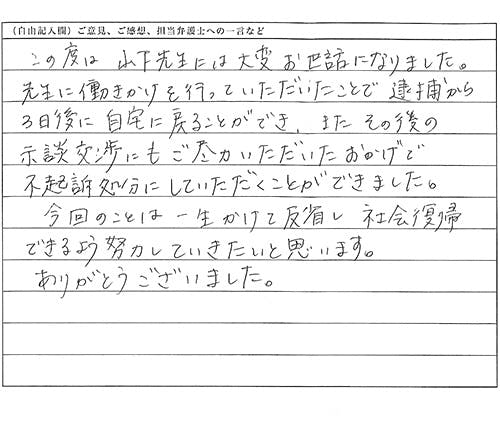 (自由記入欄)ご意見、ご感想、担当弁護士への一言など
この度は 山下先生には大変お世話になりました。
先生に働きかけを行っていただいたことで 逮捕から
3日後に自宅に戻ることができ、また その後の
示談交渉にもご尽力いただいたおかげで
不起訴処分にしていただくことができました。
今回のことは一生かけて反省し 社会復帰
できるよう努力していきたいと思います。
ありがとうございました。